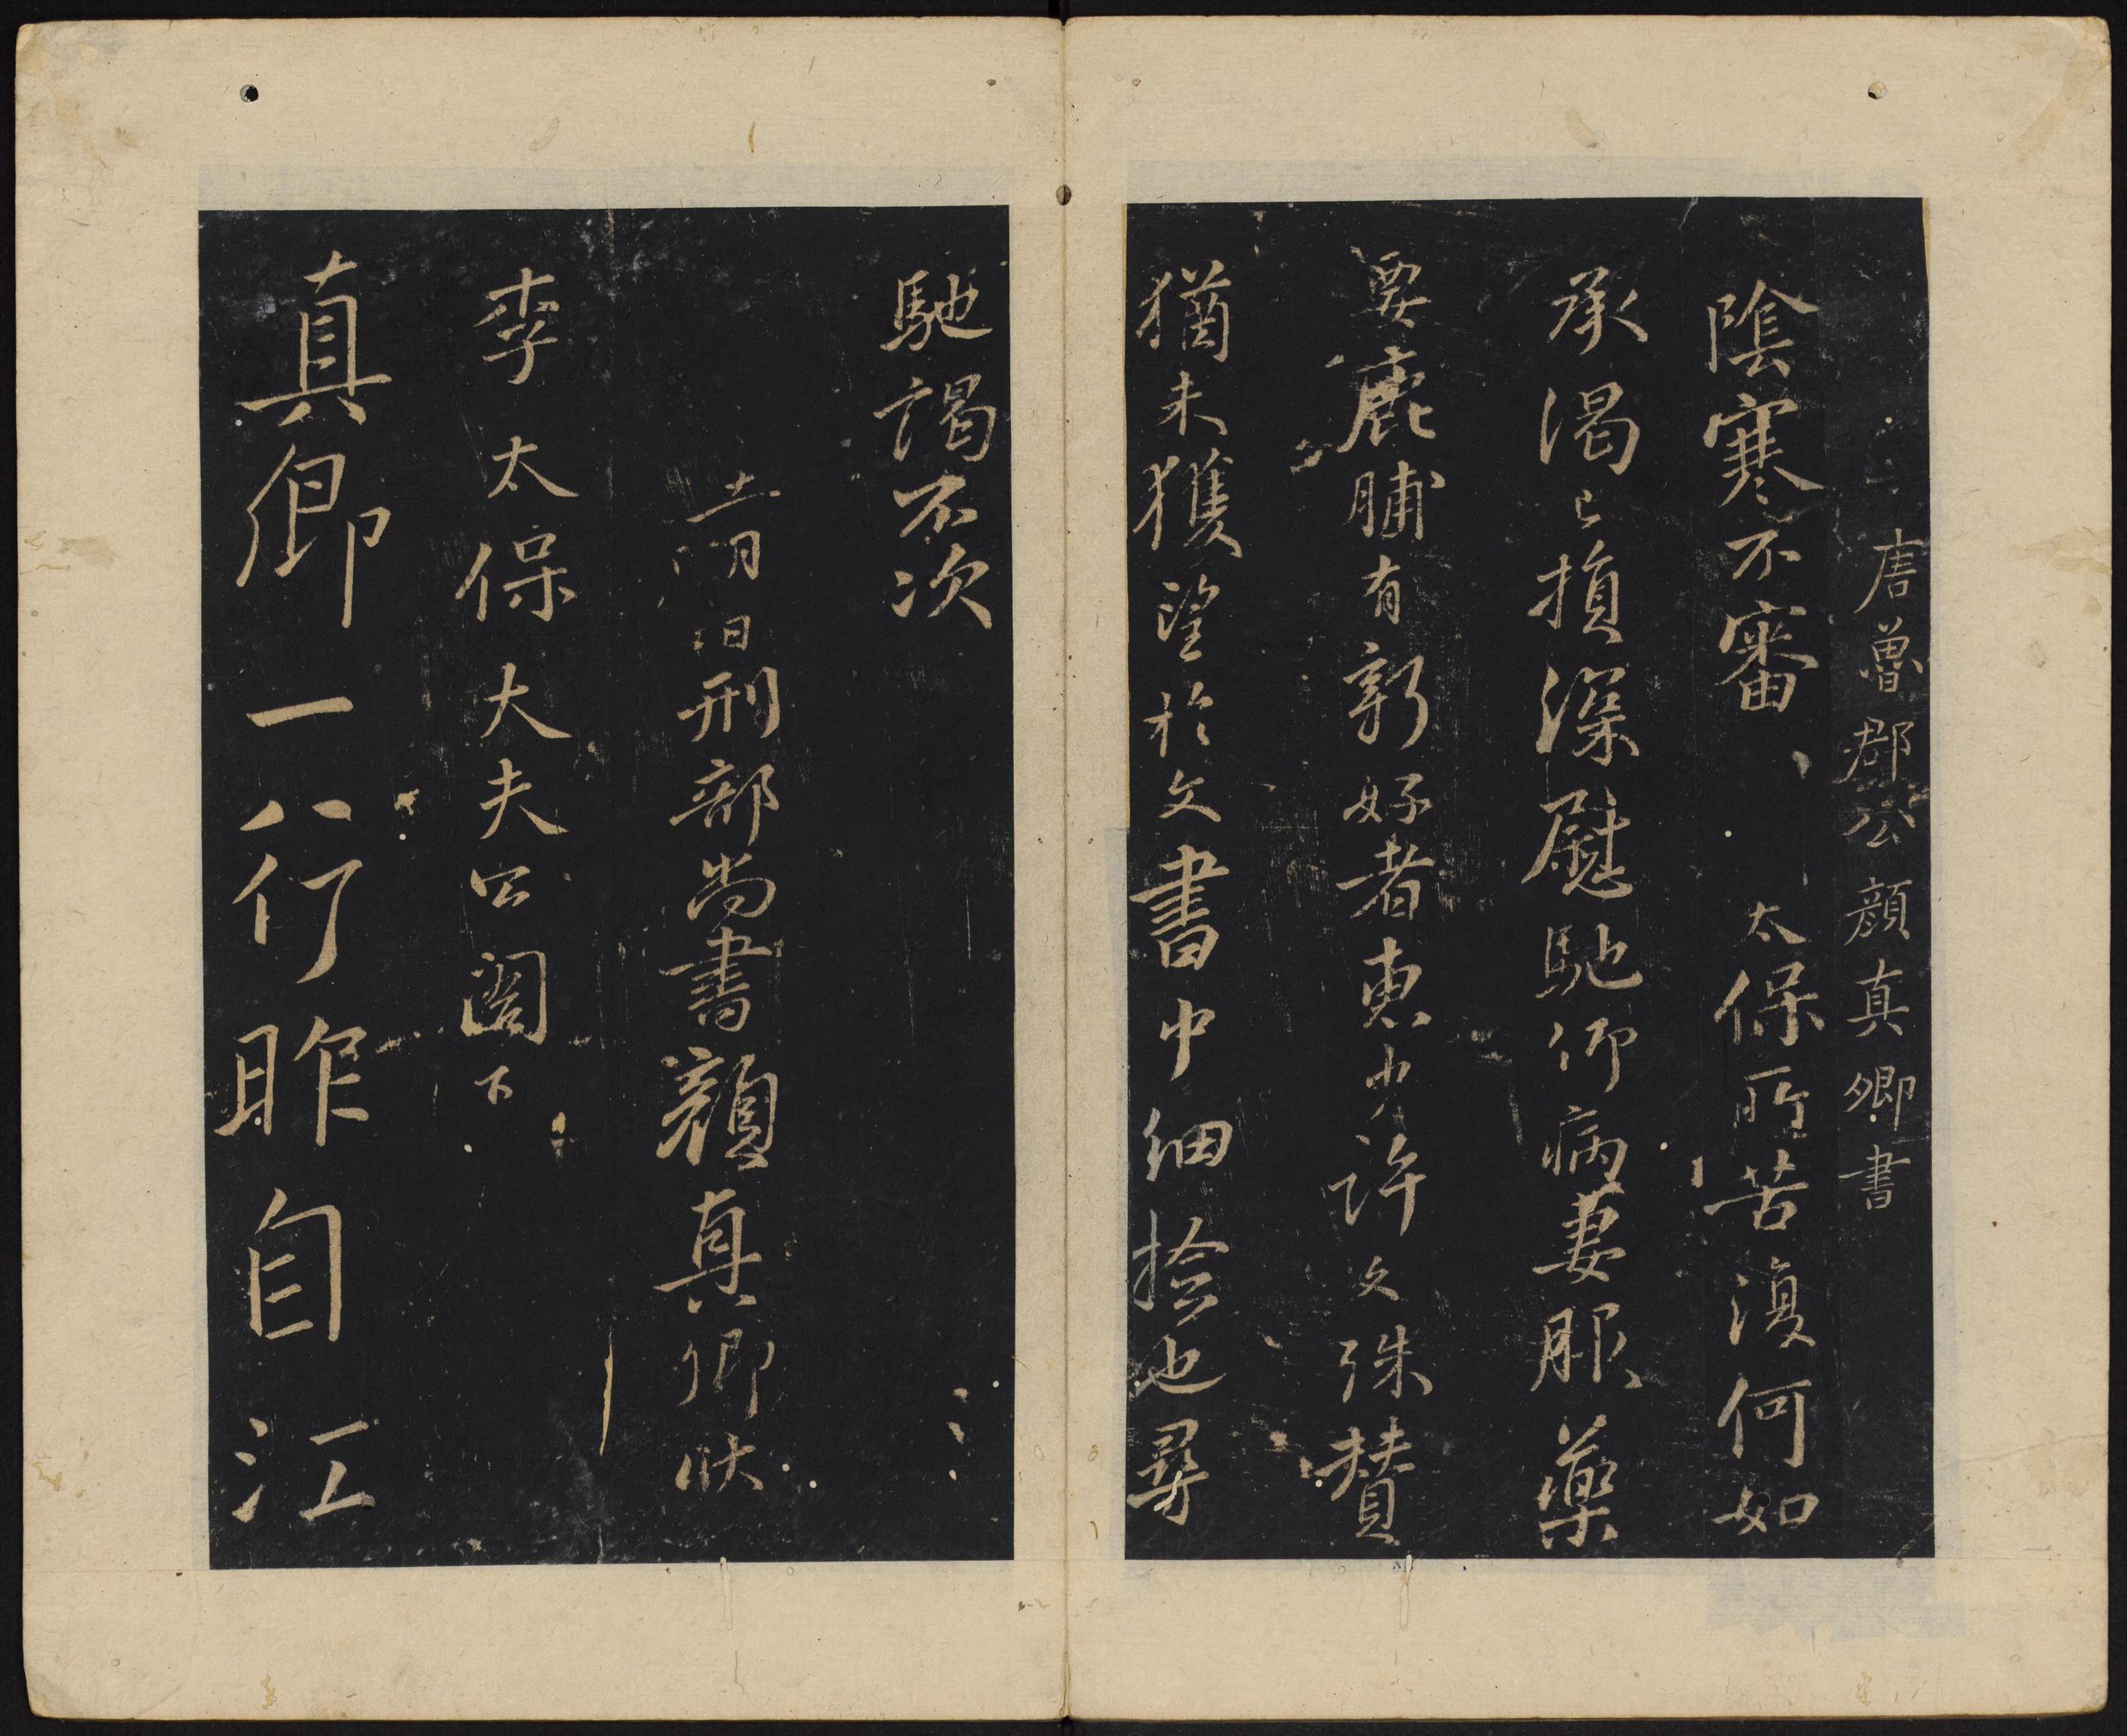 唐魯郡公顏真卿書
陰寒不審、太保所苦復何如
承渴已損深慰馳仰病妻服藥
要鹿脯有新好者惠少許文殊賛
猶未獲望於文書中細捡也尋
馳謁不次
十一月日刑部尚書顏真卿狀
李太保大夫公閣下
真卿一行昨自江